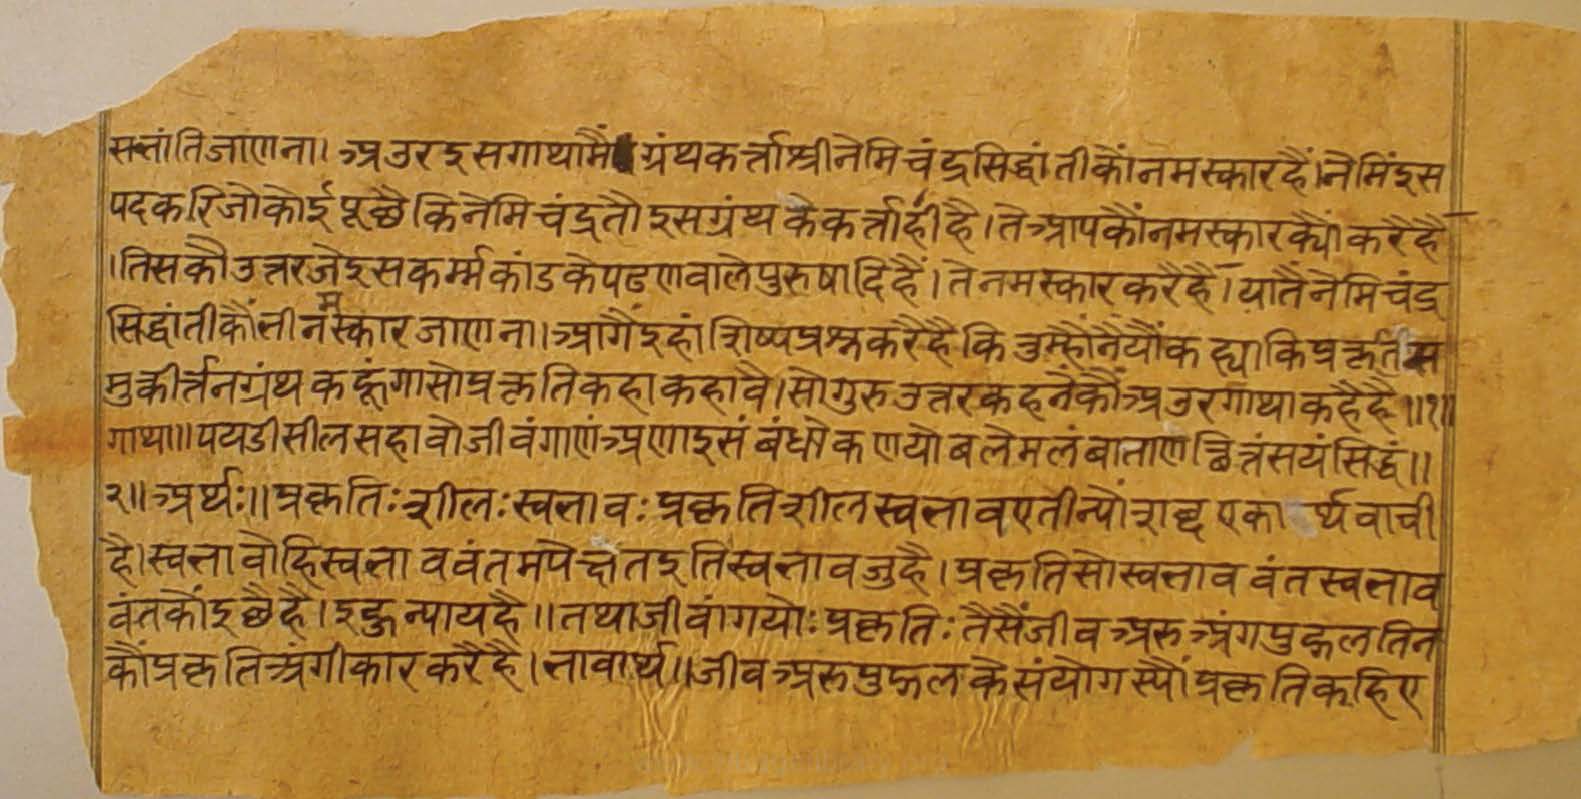 सभांति जाणना। अउर इस गाथामैं ग्रंथकर्त्ता श्री नेमिचंद्र सिद्धांतीकौं नमस्कार है। नेमिं इस
पद करि जो कोई पूछै कि नेमिचंद्र तौ इस ग्रंथ के कर्त्ता ही है। ते आपकौं नमस्कार क्यौं करै है
। तिसकौ उत्तर जे इस कर्म्मकांड के पढणवाले पुरुषादि हैं। ते नमस्कार करै है। यातैं नेमिचंद्र
सिद्धांतीकौं भी नमस्कार जाणना। आगैं इहां शिष्य प्रश्न करै है कि तुम्हौंनै यौं कह्या कि प्रकृति स
मुकीर्त्तन ग्रंथ कहूंगा सो प्रकृति कहा कहावै। सो गुरु उत्तर कहनेकौं अउर गाथा कहै है॥१॥
गाथा॥ पयडी सील सहावो जीवंगाणं अणाइसंबंधो कणयोबले मलं बाताणच्छित्तं सयं सिद्धं॥
२॥ अर्थः॥ प्रकृतिः शीलः स्वभावः प्रकृति शील स्वभाव ए तीन्यौं शब्द एकार्थवाची
है। स्वभावो हि स्वभाववंतमपेक्षत इति स्वभाव जु है। प्रकृति सो स्वभाववंत स्वभाव
वंतकौं इछै है। इहु न्याय है॥ तथा जीवांगयोः प्रकृतिः तैसैं जीव अरु अंग पुद्गल तिन
कौं प्रकृति अंगीकार करै है। भावार्थ॥ जीव अरु पुद्गल के संयोग स्यौं प्रकृति कहिए